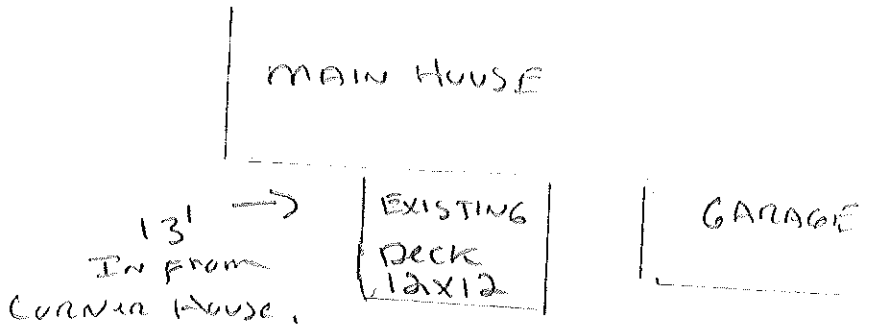 MAIN HOUSE
13' →
In From
Corner House.
EXISTING
Deck
12x12
GARAGE